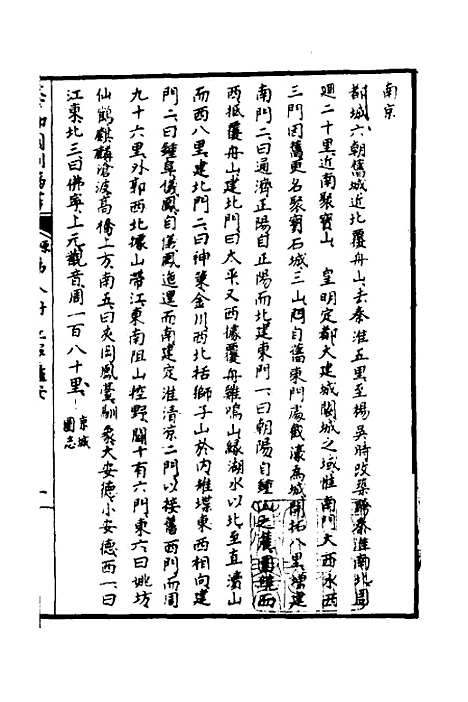 南京
都城六朝舊城近北覆舟山去秦淮五里至楊吳時改築跨秦淮南北周
迴二十里近南聚寶山　皇明定都大建城闕城之域惟南門大西水西
三門因舊更名聚寶石城三山門自舊東門處截濠為城開拓八里增建
南門二曰通濟正陽自正陽而北建東門一曰朝陽自鍾山之麓圍繞而
西抵覆舟山建北門曰太平又西據覆舟雞鳴山緣湖水以北至直瀆山
而西八里建北門二曰神策金川西北括獅子山於內雉堞東西相向建
門二曰鍾阜儀鳳自儀鳳迤邐而南建定淮清凉二門以接舊西門而周
九十六里外郭西北據山帶江東南阻山控野闢十有六門東六曰姚坊
仙鶴麒麟滄波高橋上方南五曰夾岡鳳臺馴象大安德小安德西一曰
江東北三曰佛寧上元觀音周一百八十里京城圖志
天下郡國利病書
原編八冊